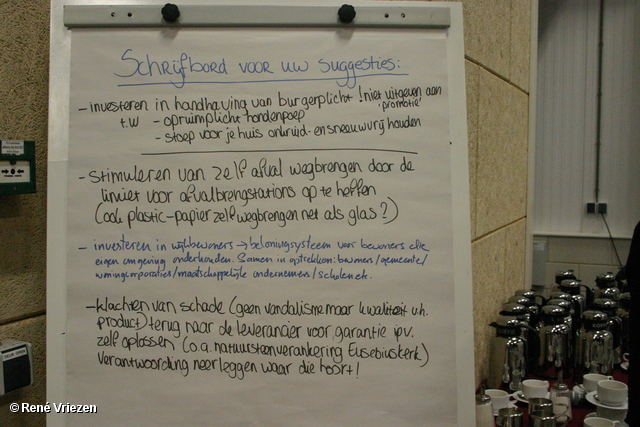 Schrijfbord voor uw suggesties:
- investeren in handhaving van burgerplicht! niet uitgeven aan
'promotie'
t.w - opruimplicht hondenpoep
- stoep voor je huis onkruid- en sneeuwvrij houden
- Stimuleren van zelf afval wegbrengen door de
limiet voor afvalbrengstations op te heffen
(ook plastic-papier zelf wegbrengen net als glas?)
- investeren in wijkbewoners → beloningssysteem voor bewoners die
eigen omgeving onderhouden. Samen in optrekken: bewoners/gemeente/
woningcorporaties/maatschappelijke ondernemers/scholen etc.
- klachten van schade (geen vandalisme maar kwaliteit v.h.
product) terug naar de leverancier voor garantie i.p.v.
zelf oplossen (o.a. natuursteenverankering Eusebiuskerk)
Verantwoording neerleggen waar die hoort!
©René Vriezen